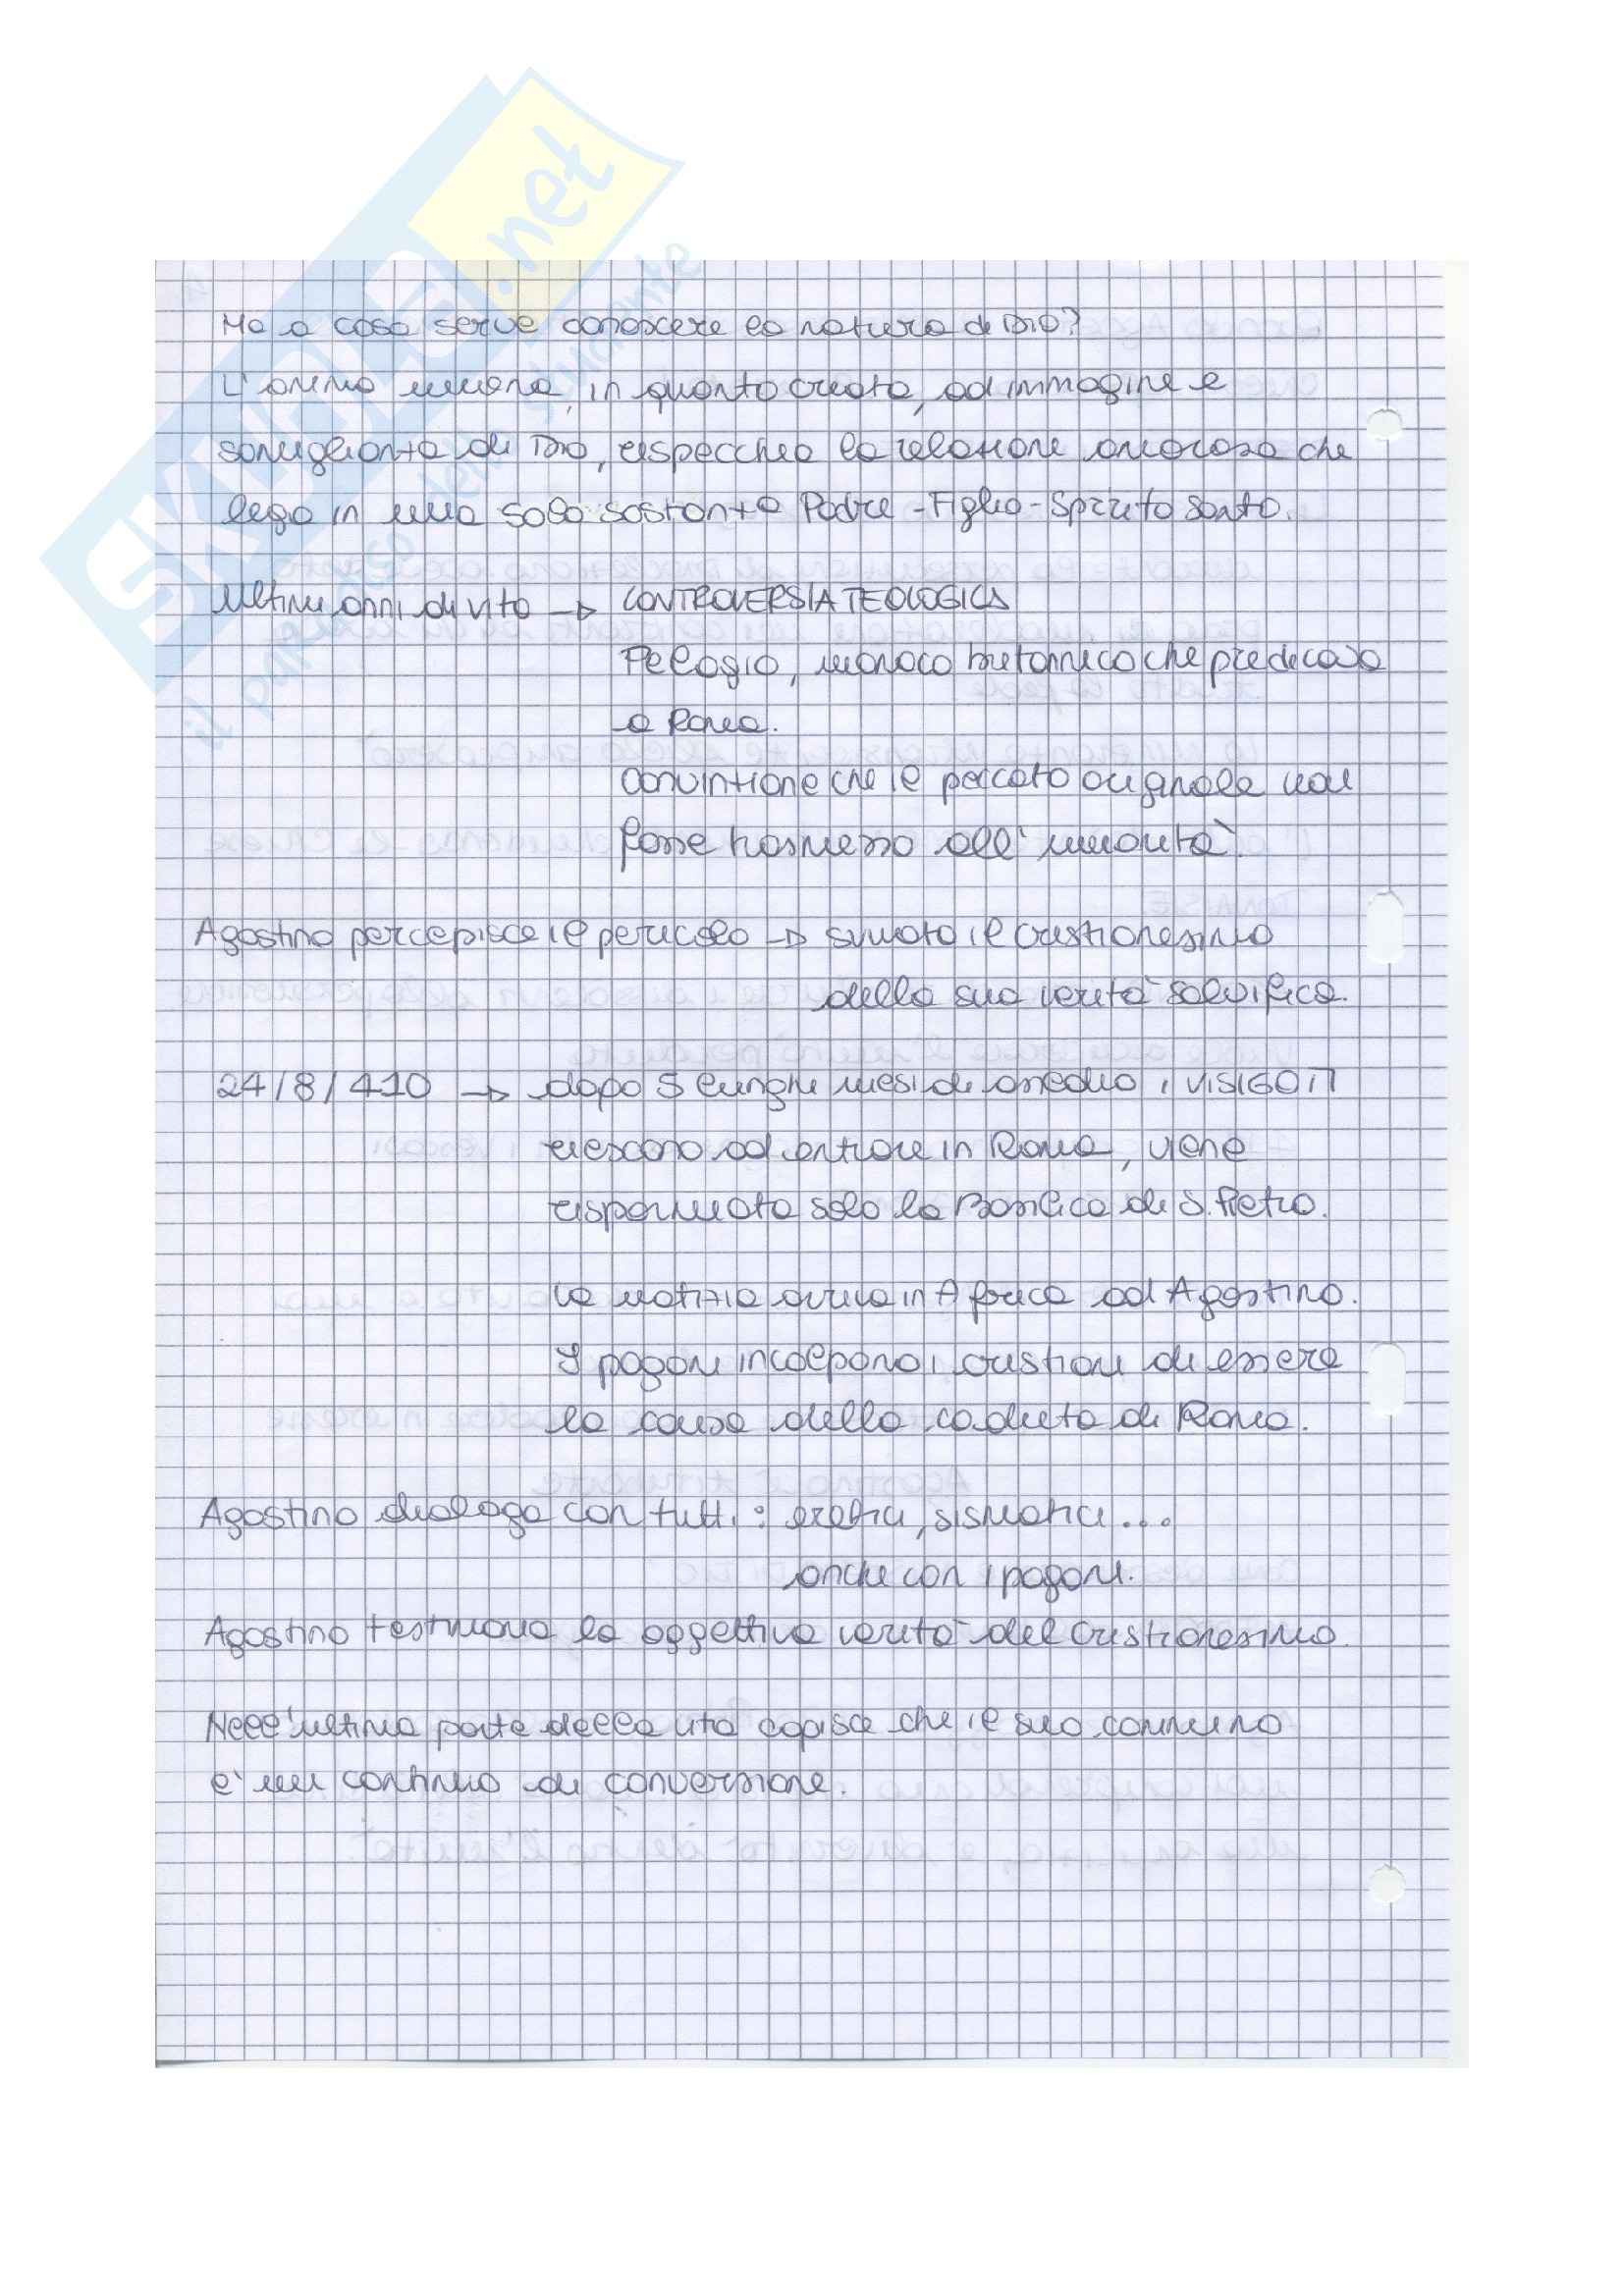 SKUOLA.net
il paradiso dello studente
Ma a cosa serve conoscere la natura di Dio?
L'anima umana, in quanto creata, ad immagine e
somiglianza di Dio, rispecchia la relazione amorosa che
lega in una sola sostanza Padre - Figlio - Spirito Santo.
Ultimi anni di vita → CONTROVERSIA TEOLOGICA
Pelagio, monaco britannico che predicava
a Roma.
Convinzione che il peccato originale non
fosse trasmesso all'umanità.
Agostino percepisce il pericolo → svuota il cristianesimo
della sua verità salvifica.
24/8/410 → dopo 5 lunghi mesi di assedio i VISIGOTI
riescono ad entrare in Roma, viene
risparmiata solo la Basilica di S. Pietro.
La notizia arriva in Africa ad Agostino.
I pagani incolpano i cristiani di essere
la causa della caduta di Roma.
Agostino dialoga con tutti: eretici, sismatici...
anche con i pagani.
Agostino testimonia la oggettiva verità del Cristianesimo.
Nell'ultima parte della vita capisce che il suo cammino
è un continuo di conversione.